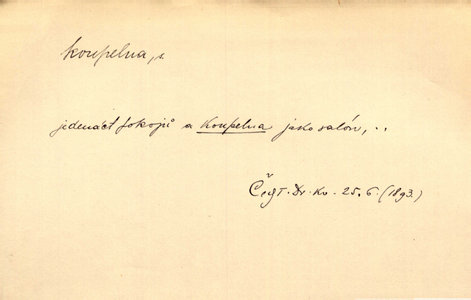 koupelna, s.
jedenáct pokojů a koupelna jako salón, ..
25. 6. (1893.)